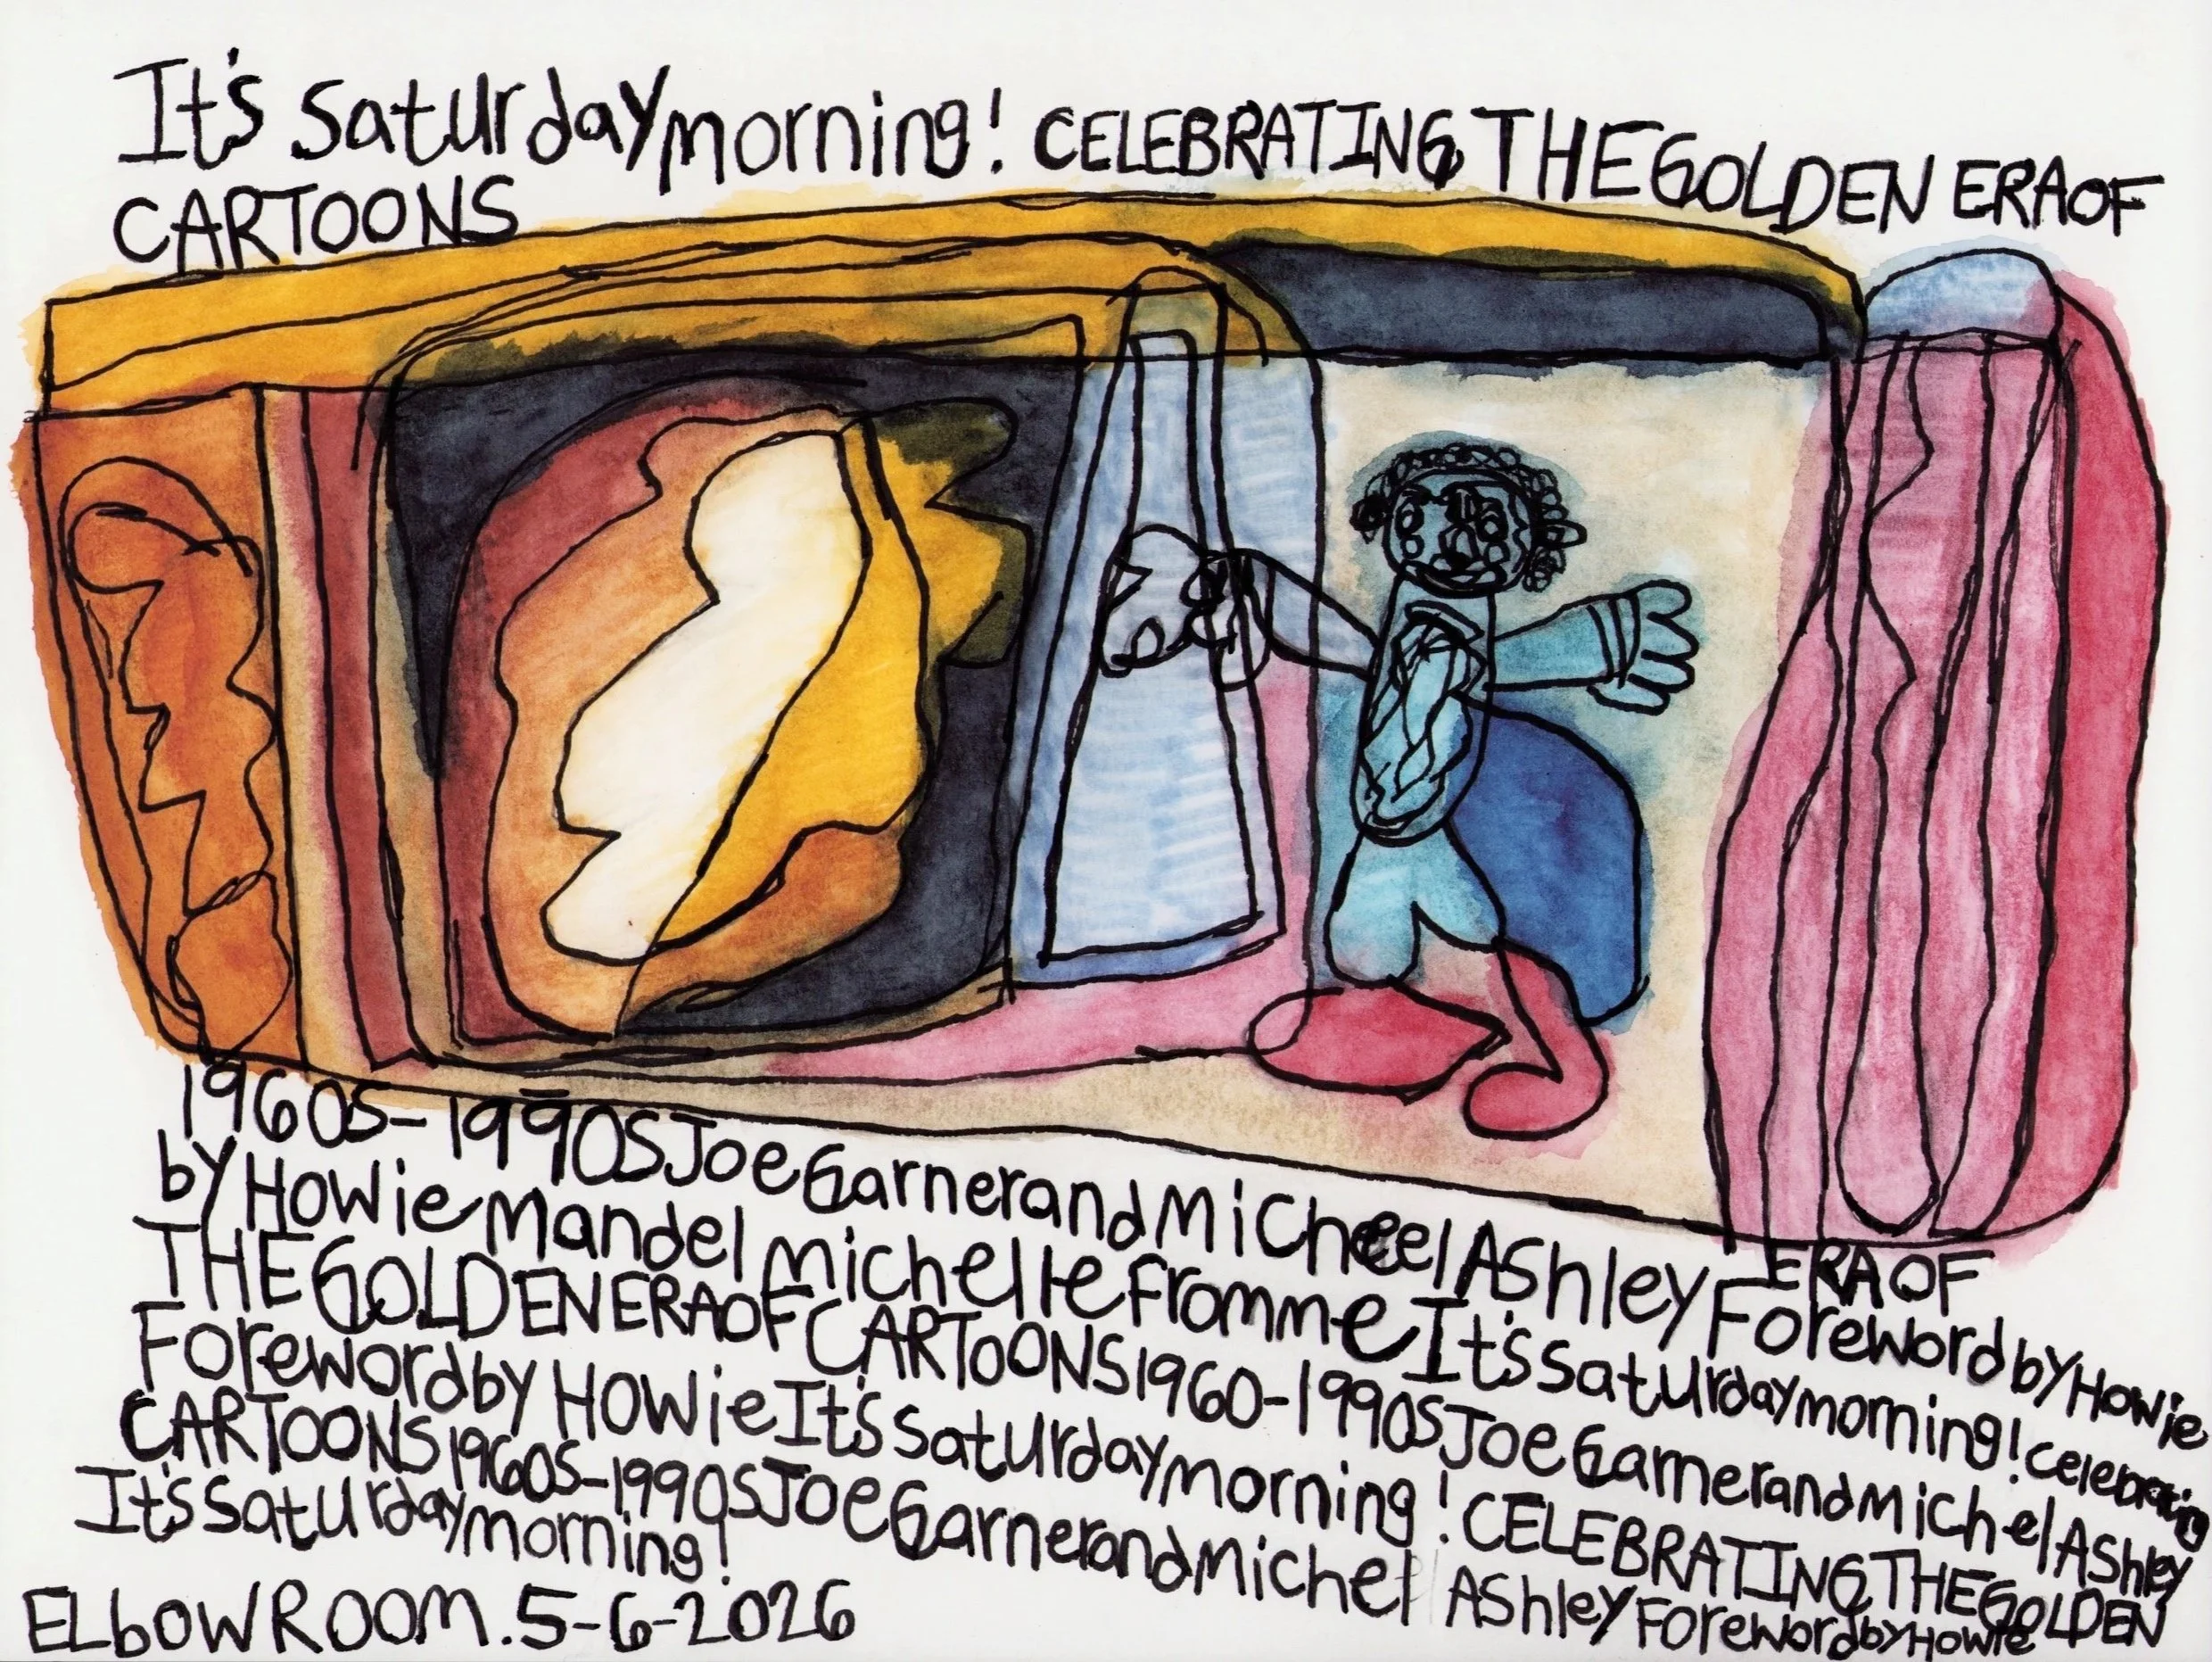 It's Saturday morning! CELEBRATING THE GOLDEN ERA OF
CARTOONS
1960S-1990S Joe Garner and Micheel Ashley Foreword by Howie
ERA OF
by Howie Mandel michelle Fromme It's Saturday morning! celebrating
THE GOLDEN ERA OF CARTOONS 1960-1990S Joe Garner and Michel Ashley
Foreword by Howie It's Saturday morning! CELEBRATING THE GOLDEN
CARTOONS 1960S-1990S Joe Garner and Michel Ashley Foreword by Howie
It's Saturday morning!
ELbOW ROOM. 5-6-2026